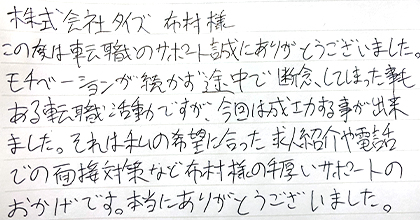 株式会社タイズ 布村様
この度は転職のサポート誠にありがとうございました。
モチベーションが続かず途中で断念してしまった事も
ある転職活動ですが、今回は成功する事が出来
ました。それは私の希望に合った求人紹介や電話
での面接対策など布村様の手厚いサポートの
おかげです。本当にありがとうございました。